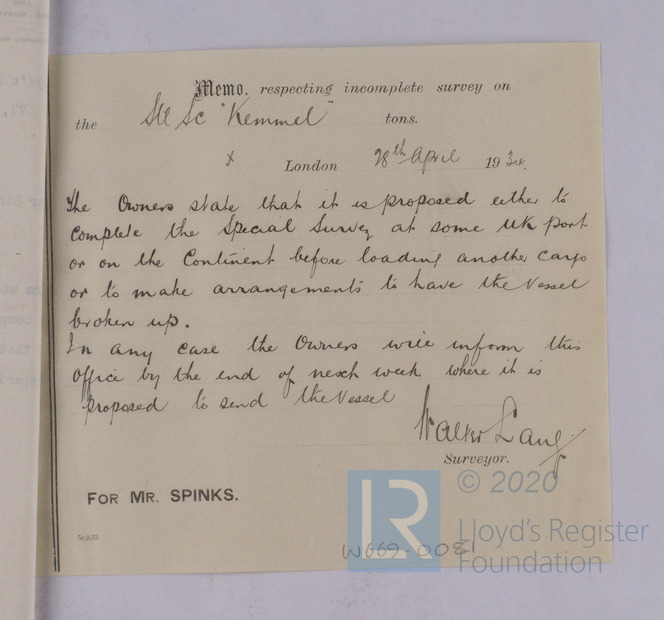 Memo. respecting incomplete survey on
the Stl Sc "Kemmel" tons.
x London 28th April 193
The Owners state that it is proposed either to
complete the Special Survey at some UK port
or on the Continent before loading another cargo
or to make arrangements to have the Vessel
broken up.
In any case the Owners will inform this
Office by the end of next week where it is
proposed to send the Vessel
Walter Lang
Surveyor.
FOR MR. SPINKS.
W669-0081
© 2020
LR
Lloyd's Register
Foundation